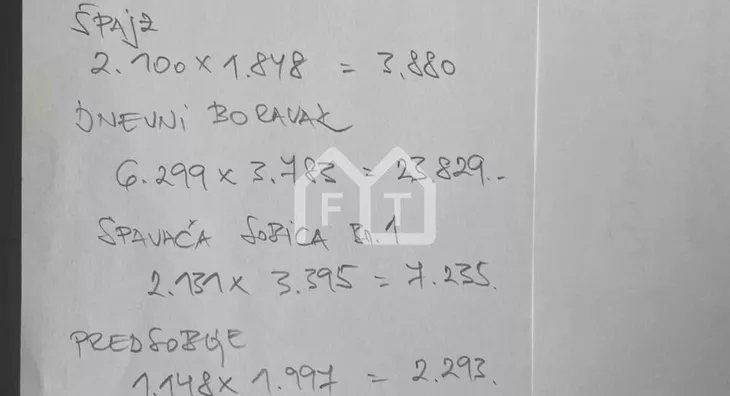 ŠPAJZ
2.100 x 1.848 = 3.880
DNEVNI BORAVAK
6.299 x 3.783 = 23.829..
FT
SPAVAĆA SOBICA BR.1
2.131 x 3.395 = 7.235.
PREDSOBLJE
1.148 x 1.997 = 2.293.